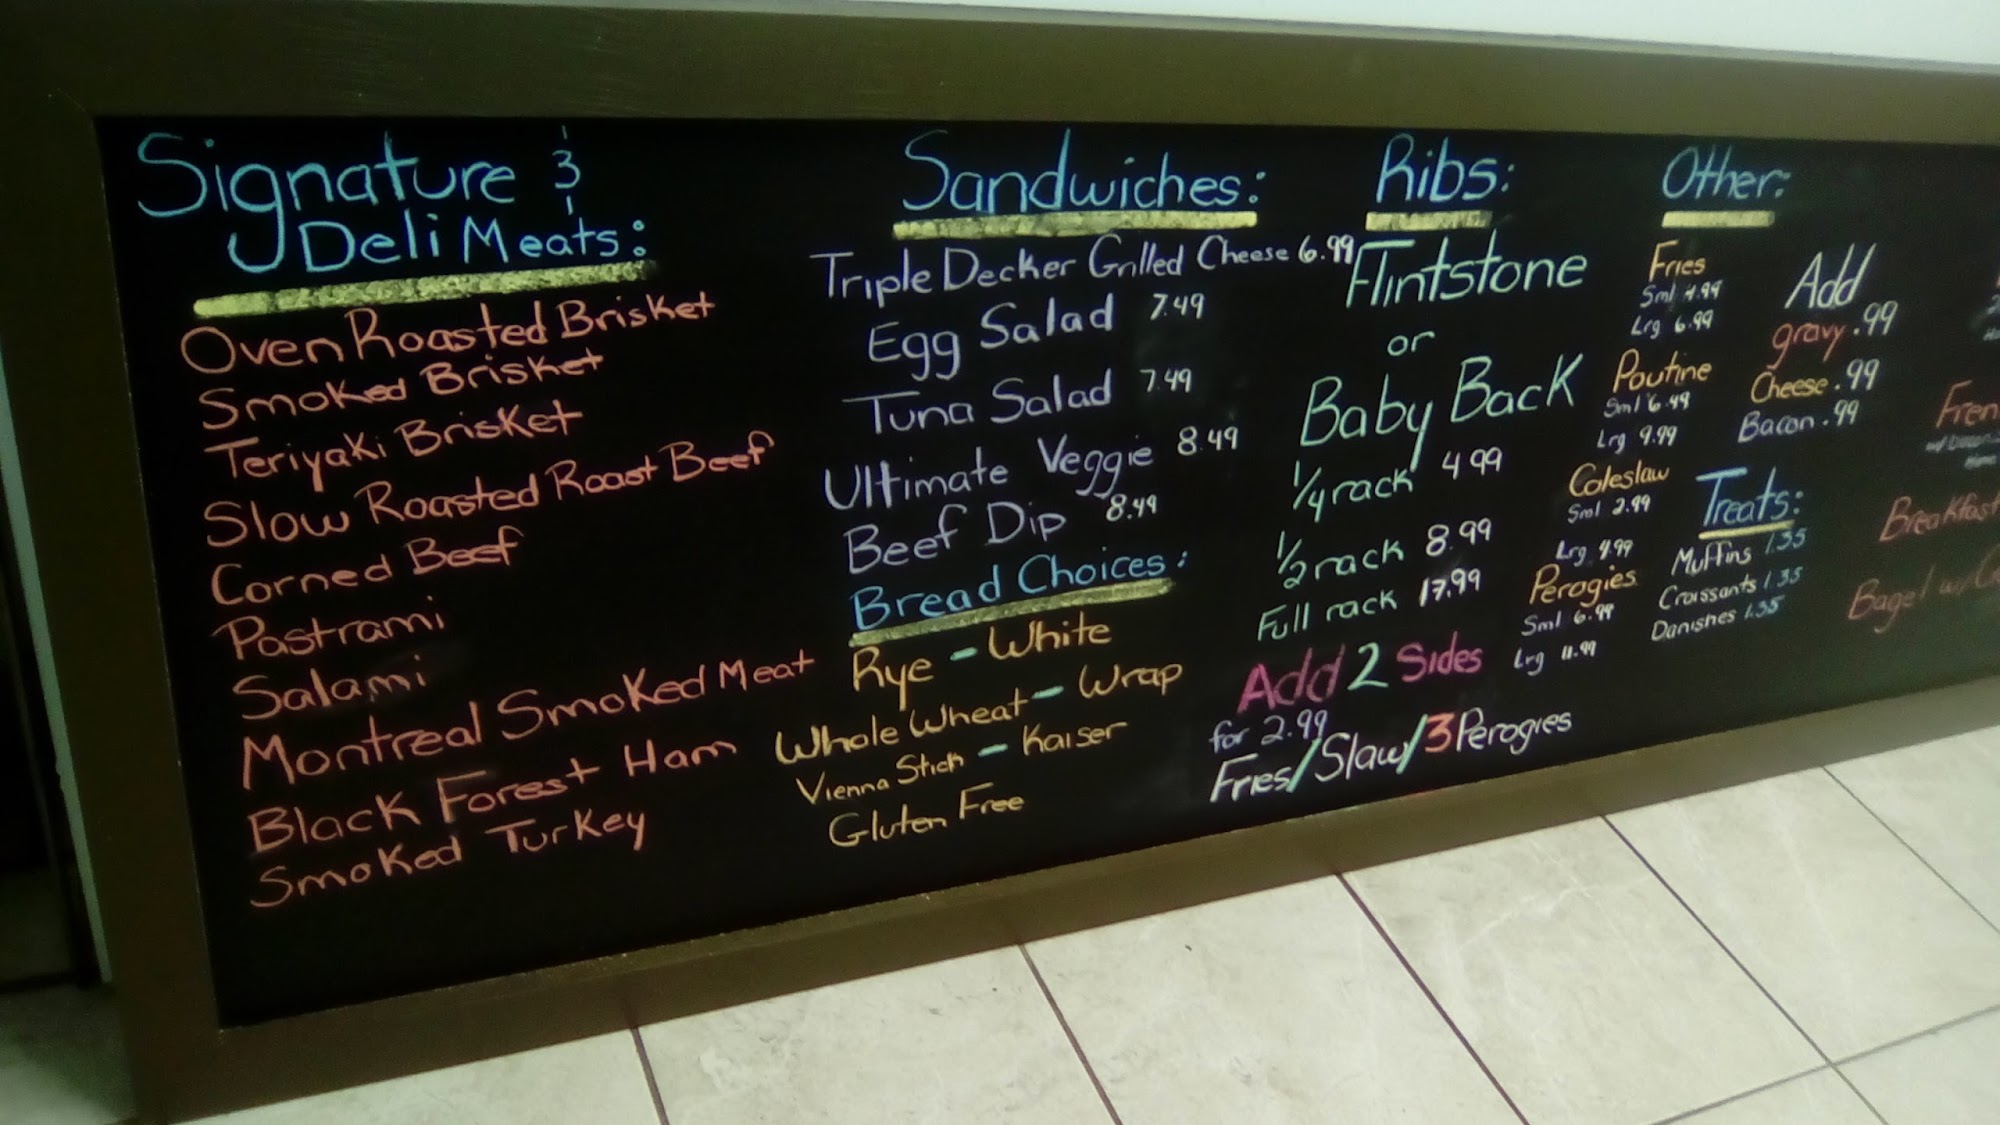 Signature &
Deli Meats:
Oven Roasted Brisket
Smoked Brisket
Teriyaki Brisket
Slow Roasted Roast Beef
Corned Beef
Pastrami
Salami
Montreal Smoked Meat
Black Forest Ham
Smoked Turkey
Sandwiches:
Triple Decker Grilled Cheese 6.99
Egg Salad 7.49
Tuna Salad 7.49
Ultimate Veggie 8.49
Beef Dip 8.49
Bread Choices:
Rye - White
Whole Wheat - Wrap
Vienna Stick - Kaiser
Gluten Free
Ribs:
Flintstone
or
Baby Back
1/4 rack 4.99
1/2 rack 8.99
Full rack 17.99
Add 2 Sides
for 2.99
Fries/Slaw/3 Perogies
Other:
Fries
Sml 4.99
Lrg 6.99
Poutine
Sml 6.49
Lrg 9.99
Coleslaw
Sml 2.99
Lrg 4.99
Perogies
Sml 6.99
Lrg 11.99
Add
gravy .99
Cheese .99
Bacon .99
Treats:
Muffins 1.35
Croissants 1.35
Danishes 1.35
Fren
Breakfast
Bagel w/